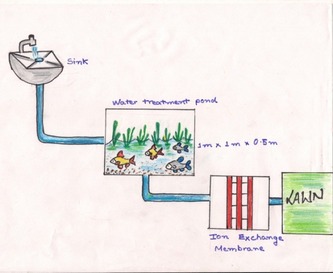 Sink
Water treatment pond
1m x 1m x 0.5m
LAWN
Ion Exchange
Membrane